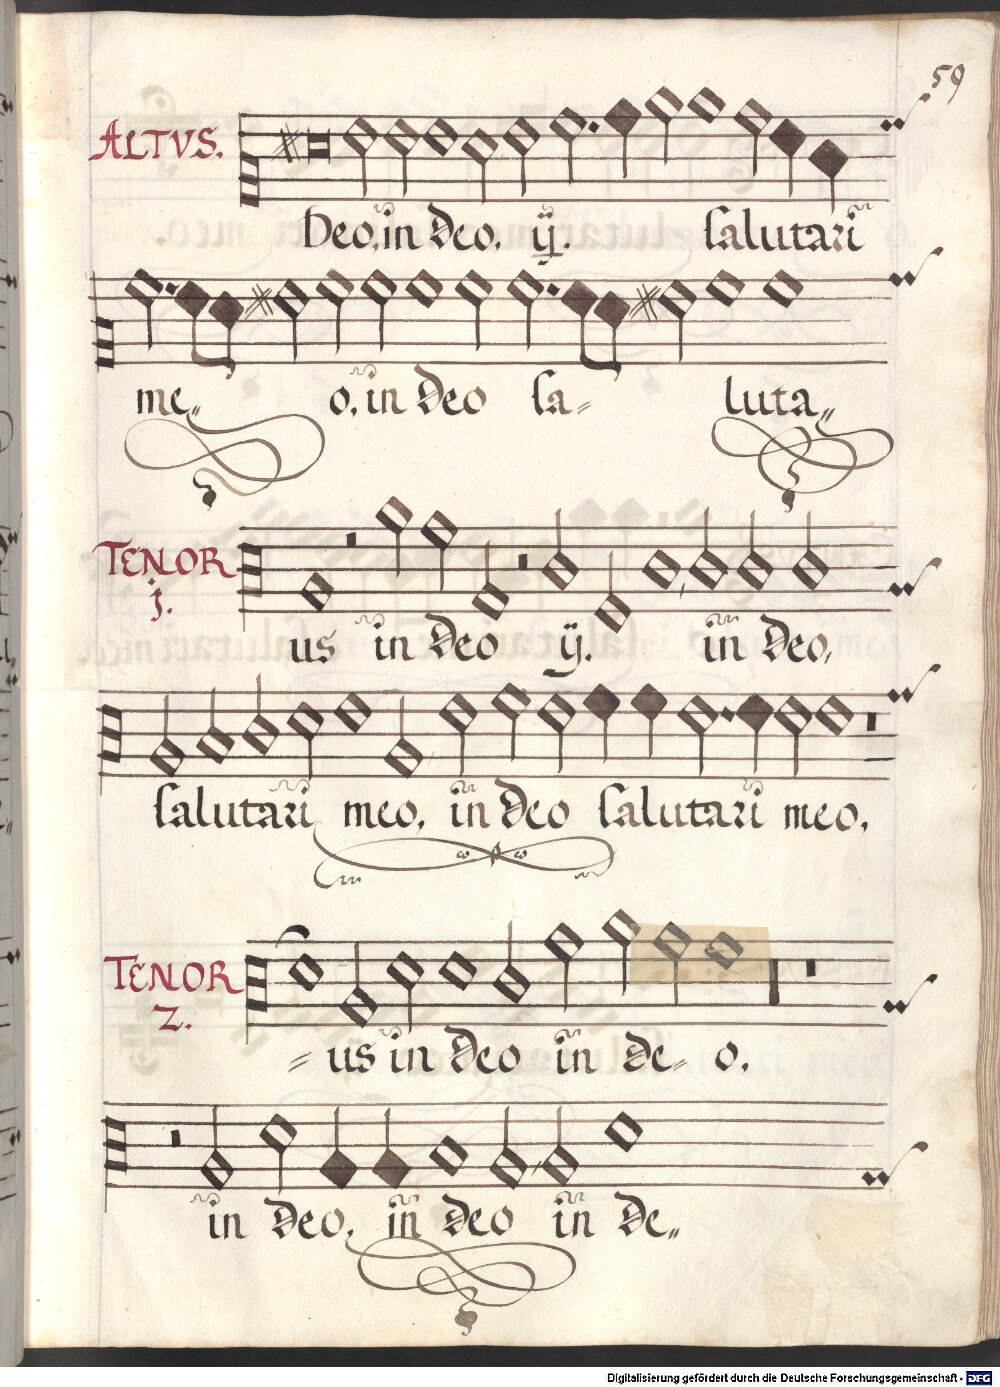 59
ALTVS.
Deo, in Deo, ij. salutari
me⸗ o, in Deo sa⸗ luta⸗
TENOR
j.
us in Deo ij. in Deo,
salutari meo, in Deo salutari meo,
TENOR
2.
⸗us in Deo in de⸗ o,
in Deo, in Deo in De⸗
Digitalisierung gefördert durch die Deutsche Forschungsgemeinschaft - DFG